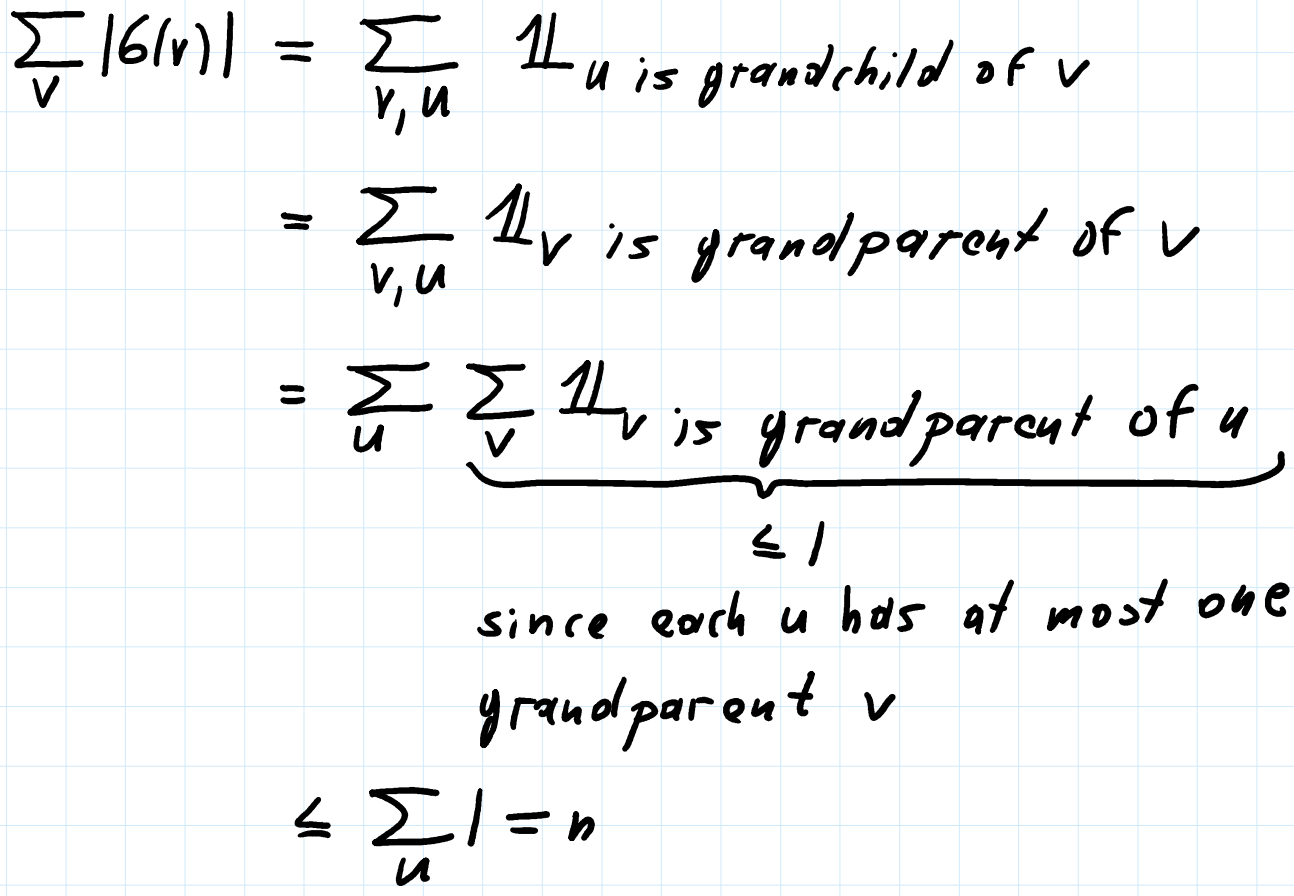 ∑_v |G(v)| = ∑_{v,u} 𝟙_{u is grandchild of v}
= ∑_{v,u} 𝟙_{v is grandparent of v}
= ∑_u ∑_v 𝟙_{v is grandparent of u}
≤ 1
since each u has at most one
grandparent v
≤ ∑_u 1 = n